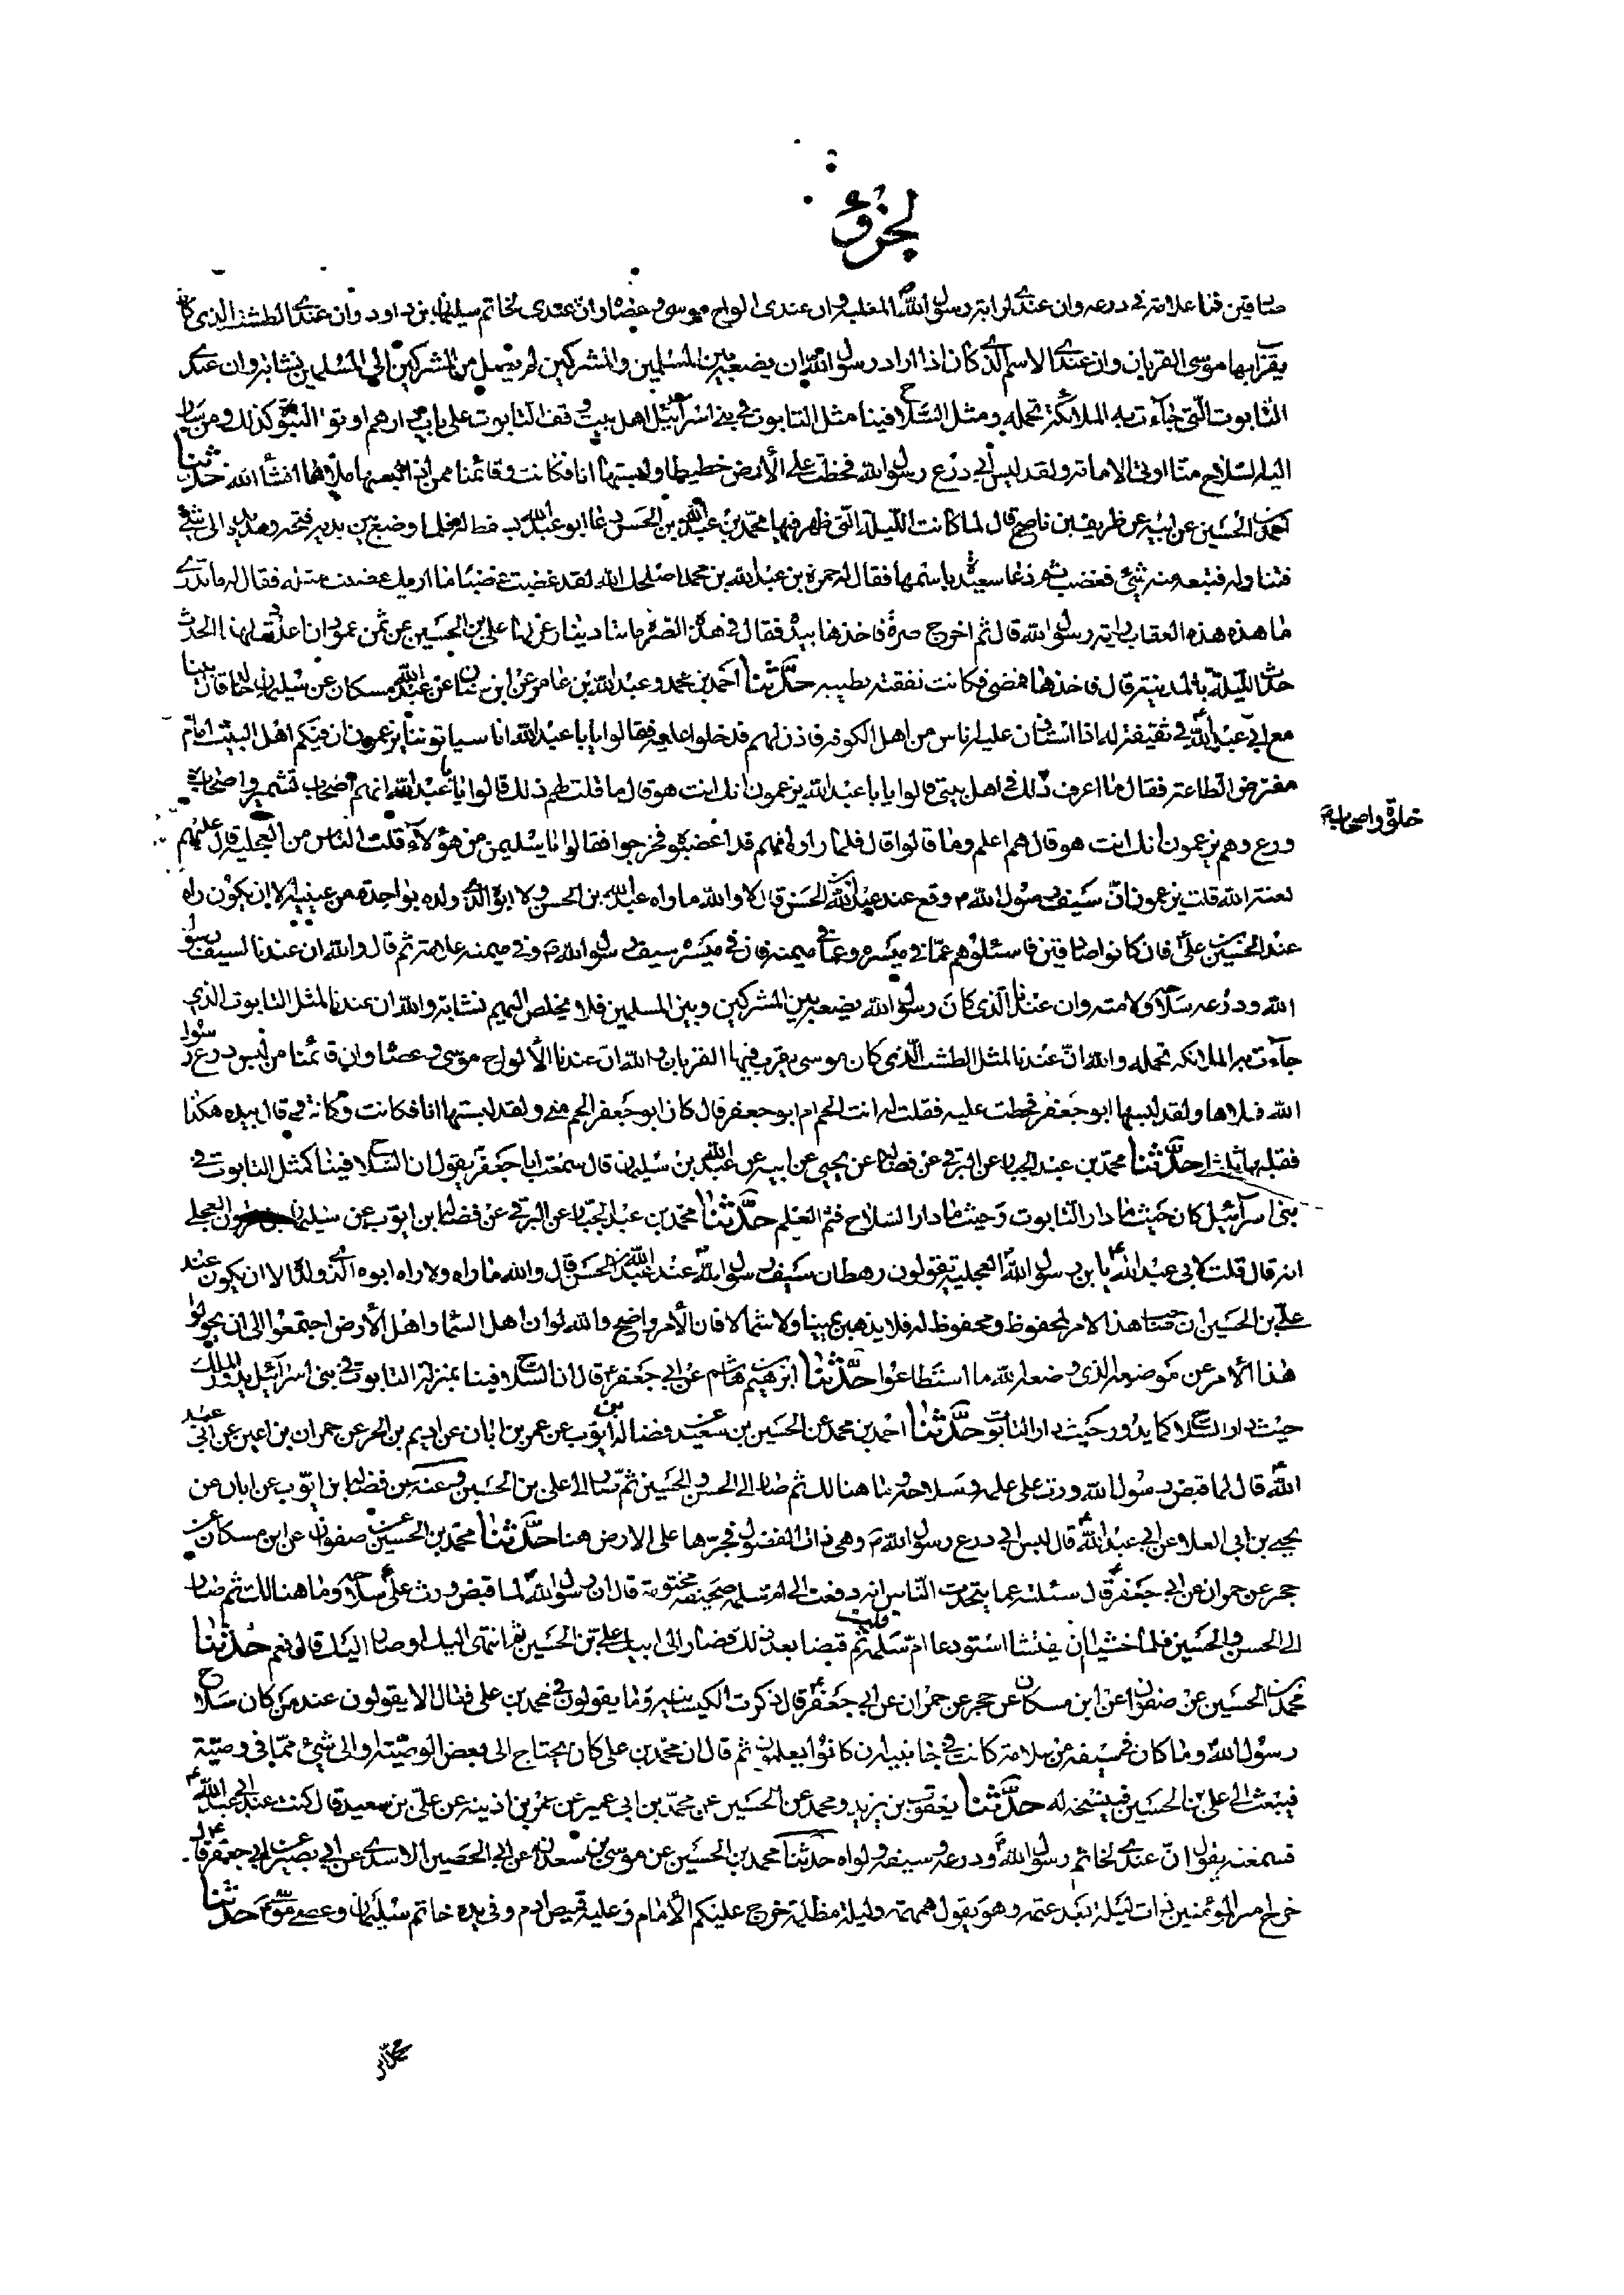 لجزؤ
صادقين فما علامة في درعه وان عندي لراية رسول الله المغلبة وان عندى الواح موسى وعصاه وان عندى لخاتم سليمان بن داود وان عندي الطشت الذى كان
يقرب بها موسى القربان وان عندي الاسم الذي كان اذا اراد رسول الله ان يضعه بين المسلمين والمشركين لم يصل من المشركين الى المسلمين نشابة وان عندي
التابوت التى جاءت به الملائكة تحمله ومثل السلاح فينا مثل التابوت في بنى اسرآئيل اهل بيت وقف التابوت على باب دارهم اوتوا النبوة كذلك ومن صار
اليه السلاح منا اوتى الامامة ولقد لبس أبي درع رسول الله فخطت على الأرض خطيطا ولبستها انا فكانت وقائمنا ممن اذا لبسها ملأها انشأ الله حدثنا
احمد بن الحسين عن ابيه عن ظريف بن ناصح قال لما كانت الليلة التى ظهر فيها محمد بن عبد الله بن الحسن دعا ابو عبد الله بسفط له فلما وضع بين يديه فتحه ومد يده الى شئ
فتناوله فتبعه منه شئ فغضب ثم دعا سعيدة باسمها فقال له حمزة بن عبد الله بن محمد اصلحك الله لقد غضبت غضبا ما ارى انك غضبت مثله فقال له ما تدرى
ما هذه هذه العقاب راية رسول الله قال ثم اخرج صرة فاخذها بيده فقال فى هذه الصرة مائتا دينار عزلها على بن الحسين عن ثمن عمودان اعدت لهذا الحدث
حدث الليلة بالمدينة قال فاخذها فمضى فكانت نفقته بطيبة حدثنا احمد بن محمد وعبد الله بن عامر عن ابن سنان عن عبد الله بن مسكان عن سليمان بن خالد قال بينا
مع ابى عبد الله في ثقيفة له اذا استأذن عليه اناس من اهل الكوفة فاذن لهم فدخلوا عليه فقالوا يابا عبد الله انا سيأتوننا يزعمون ان فيكم اهل البيت امام
مفترض الطاعة فقال ما اعرف ذلك فى اهل بيتى قالوا يابا عبد الله يزعمون انك انت هو قال ما قلت لهم ذلك قالوا يابا عبد الله انهم اصحاب تشمير واصحاب
خلوة واصحاب
ورع وهم يزعمون انك انت هو قال هم اعلم وما قالوا قال فلما راوه انهم قد اغضبوه فخرجوا فقالوا يا سليمن من هؤلاء قلت الناس من العجلية قال عليهم
لعنة الله قلت يزعمون ان سيف رسول الله م وقع عند عبد الله بن الحسن قال لا والله ما راه عبد الله بن الحسن ولا ابوه الذى ولده بواحدة من عينيه الا ان يكون راه
عند الحسين بن علي فان كانوا صادقين فاسئلوهم عما في ميسرته وعما في ميمنته فان فى ميسرة سيف رسول الله م وفى ميمنته علامة ثم قال والله ان عندنا لسيف رسول
الله ودرعه وسلاحه ولامته وان عندنا الذى كان رسول الله يضعه بين المشركين وبين المسلمين فلا يخلص اليهم نشابة والله ان عندنا لمثل التابوت الذي
جاءت به الملائكه تحمله والله ان عندنا لمثل الطشت الذى كان موسى يقرب فيها القربان والله ان عندنا لألواح موسى وعصاه وان قائمنا من لبس درع رسول
الله فملاها ولقد لبسها ابو جعفر فخطت عليه فقلت له انت الحم ام ابو جعفر قال كان ابو جعفر الحم منى ولقد لبستها انا فكانت وكانت وقال بيده هكذا
فقلبها ثلثا حدثنا محمد بن عبد الجبار عن البرقى عن فضالة عن يحيى عن ابيه عن عبد الله بن سليمان قال سمعت ابا جعفر يقول ان السلاح فينا كمثل التابوت في
بنى اسرآئيل كان حيث ما دار التابوت وحيث ما دار السلاح فثم العلم حدثنا محمد بن عبد الجبار عن البرقى عن فضالة بن ايوب عن سليمان بن هرون العجلى
انه قال قلت لابى عبد الله يابن رسول الله العجلية يقولون رهط ان سيف رسول الله عند عبد الله بن الحسن قال والله ما راه ولا راه ابوه الذى ولده الا ان يكون عند
على بن الحسين ان صاحب هذا الامر لمحفوظ ومحفوظ له فلا يذهبن يمينا ولا شمالا فان الأمر واضح والله لو ان اهل السما واهل الأرض اجتمعوا الى ان يحولوا
هذا الأمر من موضعه الذى وضعه الله ما استطاعوا حدثنا ابراهيم بن هاشم عن ابى جعفر قال ان السلاح فينا بمنزلة التابوت في بنى اسرآئيل يدور الملك
حيث دار السلاح كما يدور حيث دار التابوت حدثنا احمد بن محمد عن الحسين بن سعيد عن فضالة بن ايوب عن عمر بن ابان عن اديم بن الحر عن حمران بن اعين عن ابى عبد
الله قال لما قبض رسول الله ورث على علمه وسلاحه وما هنالك ثم صار الى الحسن والحسين ثم صار الى على بن الحسين وعنه عن فضالة بن ايوب عن ابان عن
يحيى بن ابى العلا عن ابى عبد الله قال لبس ابى درع رسول الله م وهى ذات الفضول فجرها على الارض هنا حدثنا محمد بن الحسين عن صفوان عن ابن مسكان عن
حجر عن حمران عن ابى جعفر قال سئلته عما يتحدث الناس انه دفعت الى ام سلمة صحيفة مختومة قال ان رسول الله لما قبض ورث على سلاحه وما هنالك ثم صار
الى الحسن والحسين فلما خشيا ان يفتشا استودعا ام سلمة قلت ثم قبضا بعد ذلك فصار الى ابيك على بن الحسين ثم انتهى اليك او صار اليك قال نعم حدثنا
محمد بن الحسين عن صفوان عن ابن مسكان عن حجر عن حمران عن ابى جعفر قال ذكرت الكيسانية وما يقولون في محمد بن على فقال الا يقولون عند من كان سلاح
رسول الله وما كان فى سيفه من علامة كانت فى جانبيه ان كانوا يعلمون ثم قال ان محمد بن على كان يحتاج الى بعض الوصية او الى شئ مما فى وصيته
فيبعث الى على بن الحسين فينسخه له حدثنا يعقوب بن يزيد ومحمد عن الحسين عن محمد بن ابى عمير عن عمر بن اذينه عن على بن سعيد قال كنت عند ابى عبد الله
فسمعته يقول ان عندي لخاتم رسول الله ودرعه وسيفه ولواه حدثنا محمد بن الحسين عن موسى بن سعدان عن ابى الحصين الاسدى عن ابى بصير عن ابى جعفر قال
خرج امير المؤمنين ذات ليلة بعد عتمه وهو يقول همهمه وليلة مظلمة خرج عليكم الأمام وعليه قميص ادم وفى يده خاتم سليمان وعصى موسى حدثنا
محمد بن